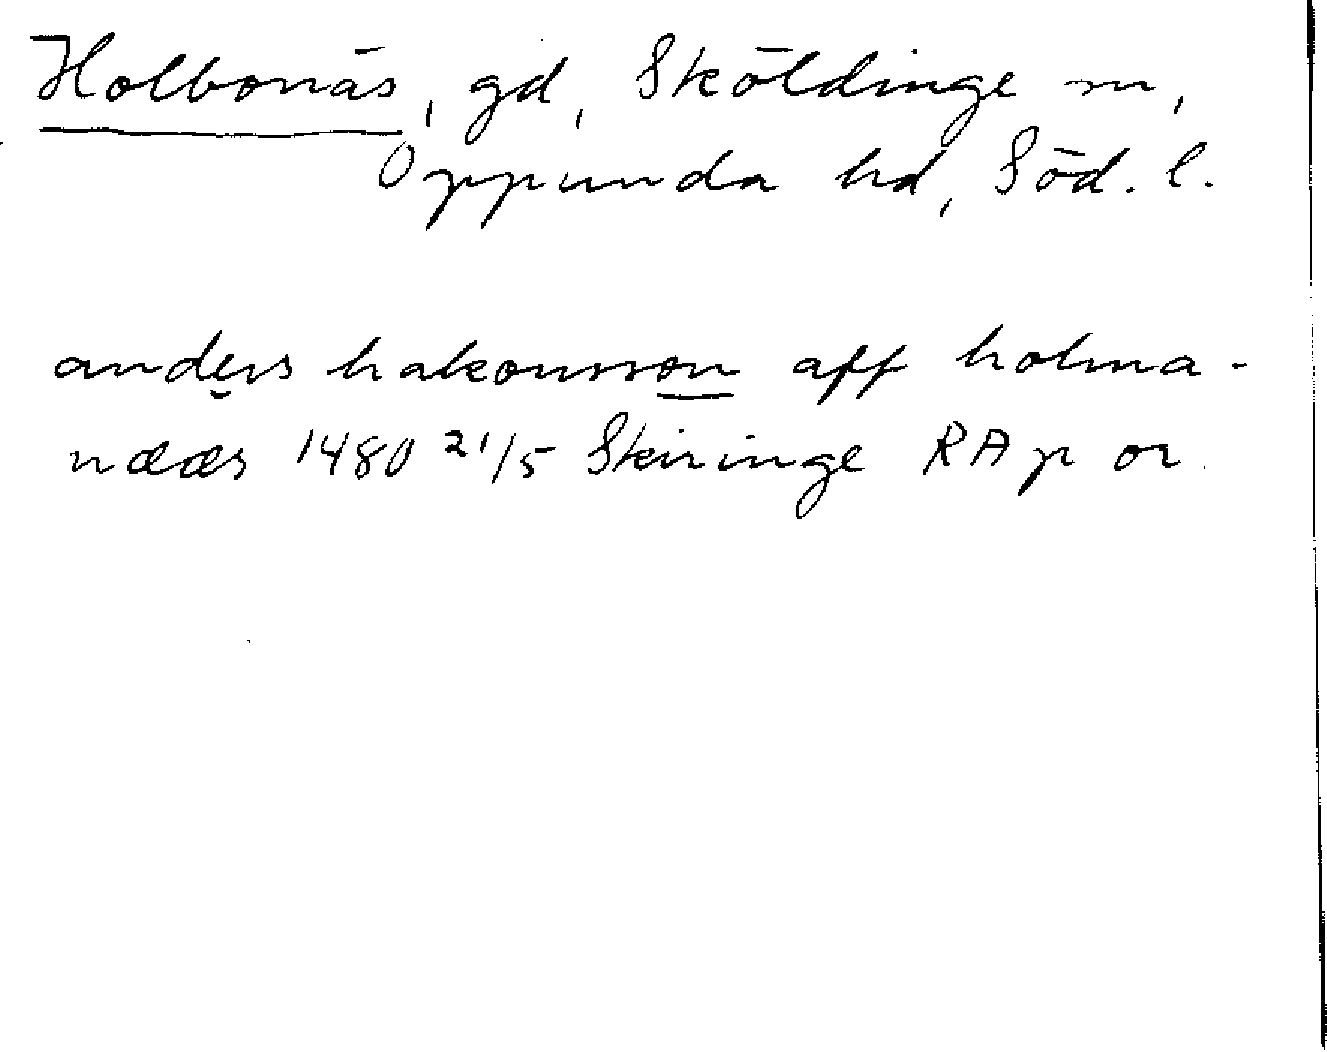 Holbonäs, gd, Sköldinge sn,
Oppunda hd, Söd. l.
anders hakonsson aff holma-
nææs 1480 21/5 Skiringe RA p or